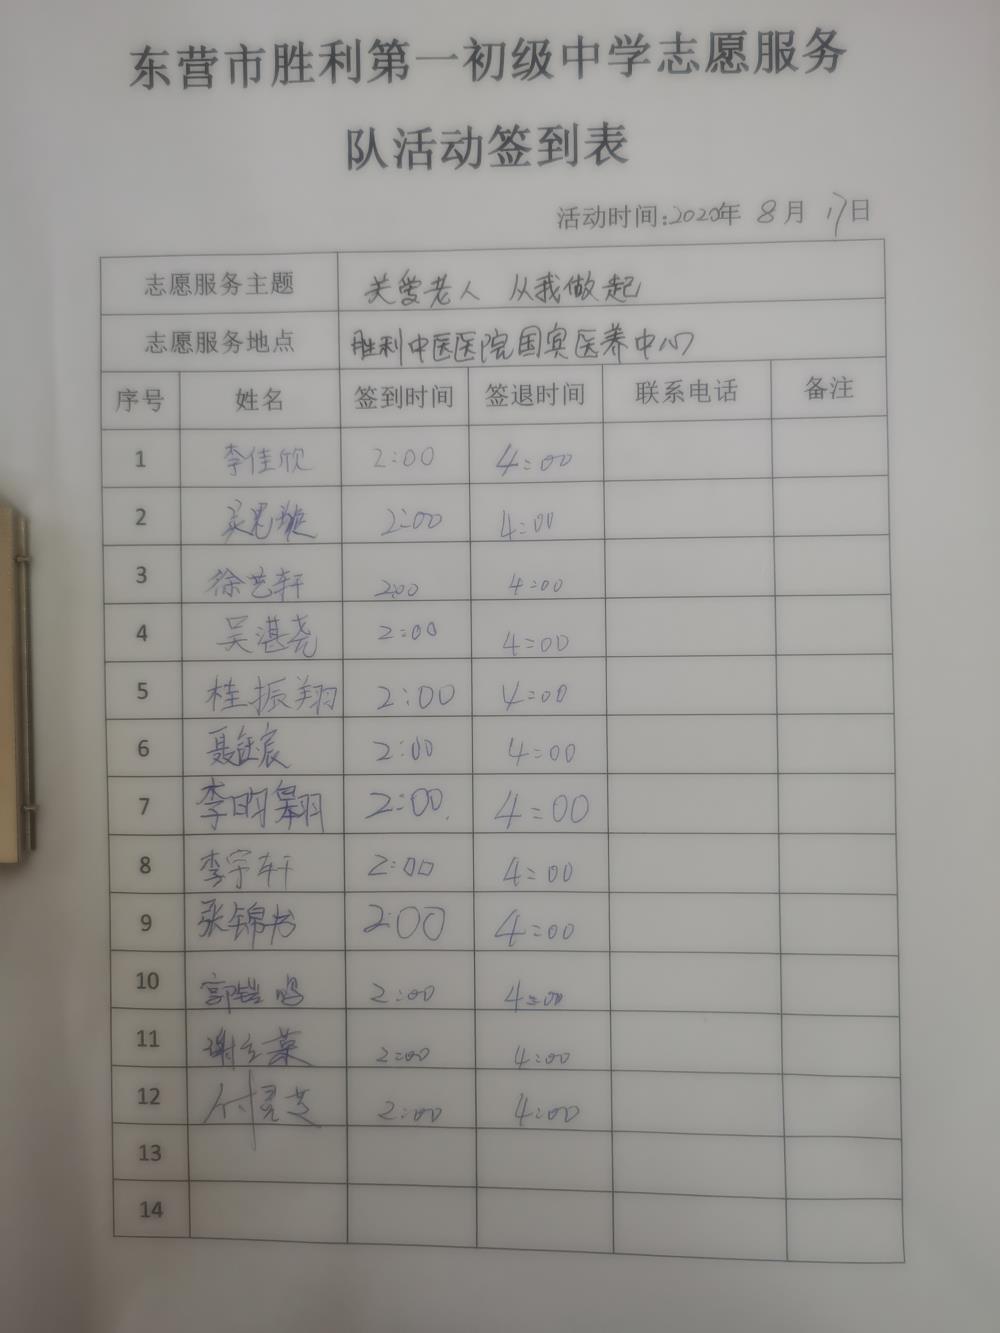 东营市胜利第一初级中学志愿服务
队活动签到表
活动时间:2020年 8月 17日
志愿服务主题 关爱老人 从我做起
志愿服务地点 胜利中医医院国宾医养中心
序号 姓名 签到时间 签退时间 联系电话 备注
1 李佳欣 2:00 4:00
2 2:00 4:00
3 徐艺轩 2:00 4:00
4 吴湛尧 2:00 4:00
5 桂振翔 2:00 4:00
6 聂钰宸 2:00 4:00
7 2:00 4:00
8 李宇轩 2:00 4:00
9 张锦书 2:00 4:00
10 2:00 4:00
11 2:00 4:00
12 2:00 4:00
13
14